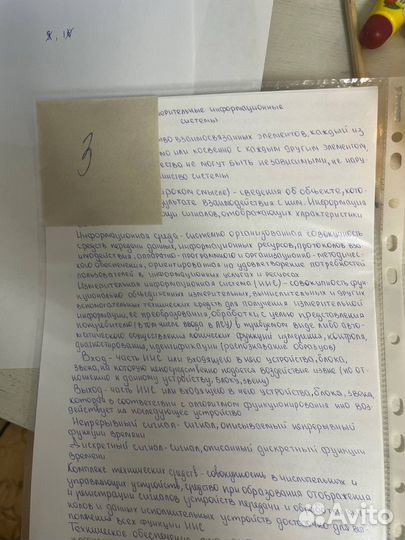 рительные информационные
системы
тво взаимосвязанных элементов, каждый из
но или косвенно с каждым другим элементом,
ества не могут быть независимыми, не нару
инство системы
3
ироком смысле) - сведения об объекте, кото-
зультате взаимодействия с ним. Информация
щи сигналов, отображающих характеристики
Информационная среда - системно организованная совокупность
средств передачи данных, информационных ресурсов, протоколов вза
имодействия, аппаратно-программного и организационно-методичес-
кого обеспечения, ориентированная на удовлетворение потребностей
пользователей в информационных услугах и ресурсах
Измерительная информационная система (ИИС) - совокупность фун
кционально объединённых измерительных, вычислительных и других
вспомогательных технических средств для получения измерительной
информации, её преобразования, обработки, с целью представления
потребителю (в том числе ввода в АСУ) в требуемом виде либо авто-
матического осуществления логических функций измерения, контроля,
диагностирования, идентификации (распознавание образов)
Вход - часть ИИС или входящего в него устройства, блока,
звена, на которую непосредственно подаётся воздействие извне (по от-
ношению к данному устройству, блоку, звену)
Выход - часть ИИС или входящего в него устройства, блока, звена,
которая в соответствии с алгоритмом функционирования ИИС воз
действует на последующее устройство
Непрерывный сигнал - сигнал, описываемый непрерывной
функцией времени
Дискретный сигнал - сигнал, описанный дискретной функцией
времени
Комплекс технических средств - совокупность вычислительных и
управляющих устройств, средств преобразования отображения
и регистрации сигналов устройств передачи и об
налов и данных исполнительных устройств достаточно для вы-
полнения всех функций ИИС
Техническое обеспечение
Avito